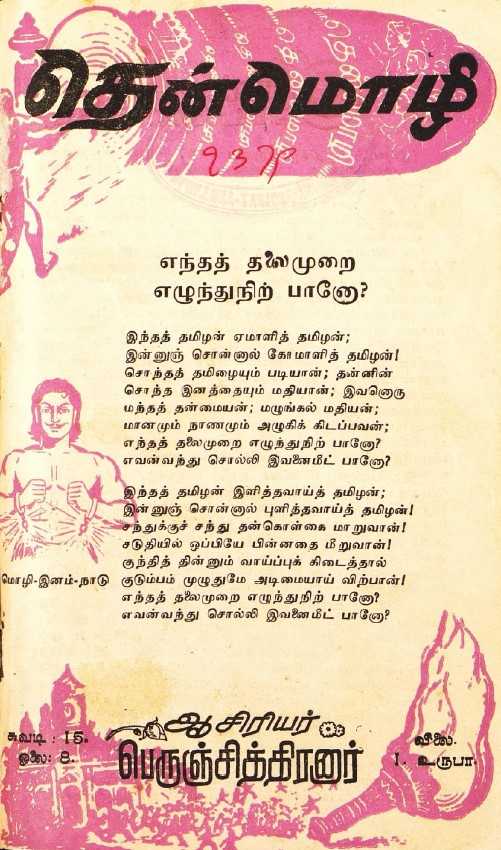 தென்மொழி
எந்தத் தலைமுறை
எழுந்துநிற் பானோ?
இந்தத் தமிழன் ஏமாளித் தமிழன்;
இன்னுஞ் சொன்னால் கோமாளித் தமிழன்!
சொந்தத் தமிழையும் படியான்; தன்னின்
சொந்த இனத்தையும் மதியான்; இவனொரு
மந்தத் தன்மையன்; மழுங்கல் மதியன்;
மானமும் நாணமும் அழுகிக் கிடப்பவன்;
எந்தத் தலைமுறை எழுந்துநிற் பானோ?
எவன்வந்து சொல்லி இவனைமீட் பானோ?
இந்தத் தமிழன் இளித்தவாய்த் தமிழன்;
இன்னுஞ் சொன்னால் புளித்தவாய்த் தமிழன்!
சந்துக்குச் சந்து தன்கொள்கை மாறுவான்!
சடுதியில் ஒப்பியே பின்னதை மீறுவான்!
குந்தித் தின்னும் வாய்ப்புக் கிடைத்தால்
குடும்பம் முழுதுமே அடிமையாய் விற்பான்!
எந்தத் தலைமுறை எழுந்துநிற் பானோ?
எவன்வந்து சொல்லி இவனைமீட் பானோ?
மொழி-இனம்-நாடு
ஆசிரியர்
பெருஞ்சித்திரனார்
சுவடி : 15.
ஓலை: 8.
விலை.
1. உருபா.